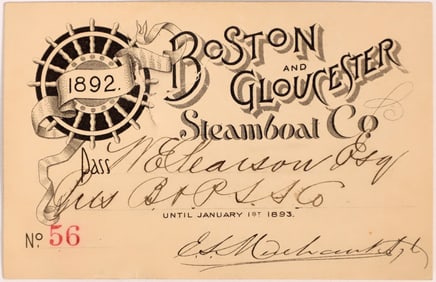 1892.
BOSTON
AND
GLOUCESTER
Steamboat Co
Pass Esq
B & P. S. S Co
UNTIL JANUARY 1ST 1893.
No 56
E.S. Merchant